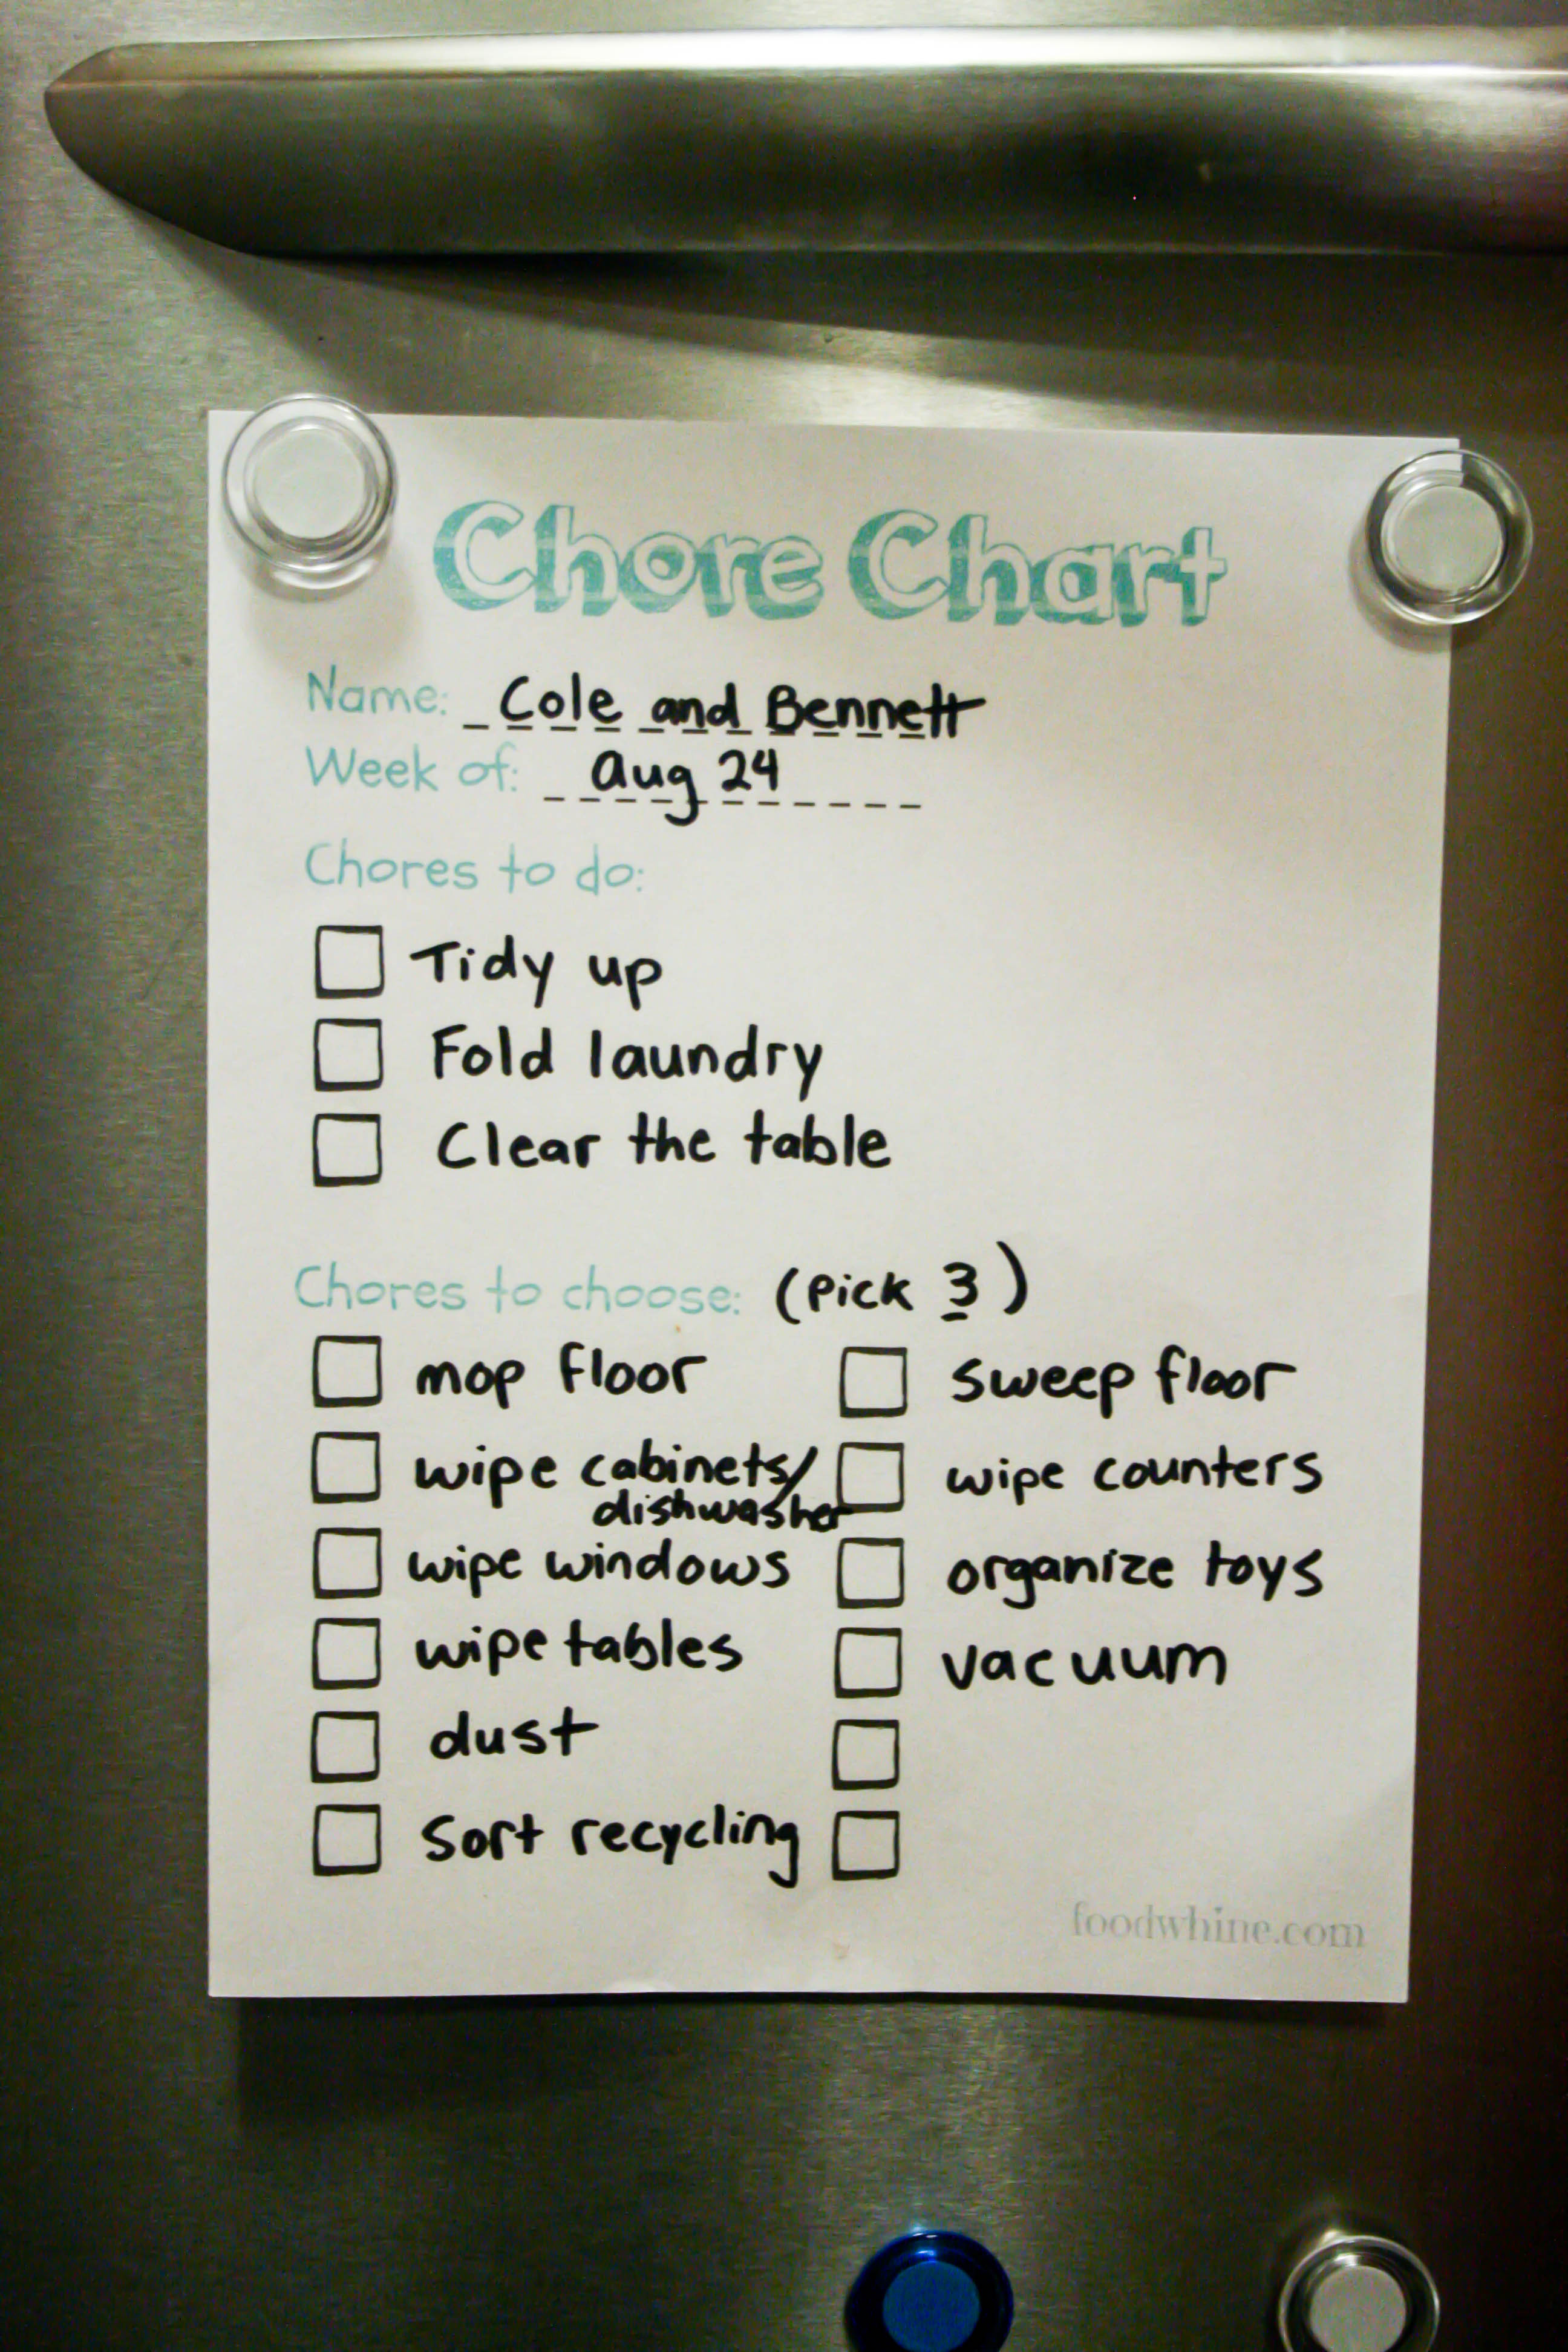 Chore Chart
Name: Cole and Bennett
Week of: Aug 24
Chores to do:
Tidy up
Fold laundry
Clear the table
Chores to choose: (Pick 3)
mop floor
wipe cabinets/
dishwasher
wipe windows
wipe tables
dust
Sort recycling
sweep floor
wipe counters
organize toys
vacuum
foodwhine.com